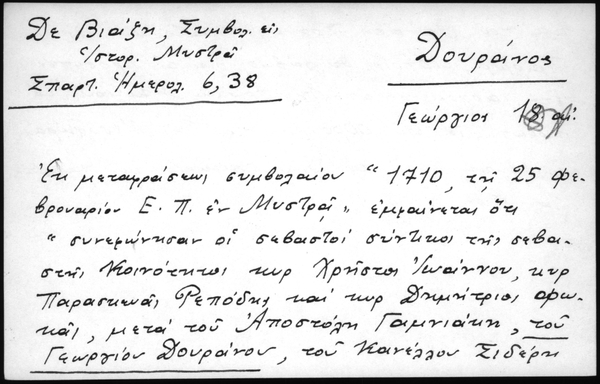 Δε Βιάζη, Συμβολ. εἰς
Ἱστορ. Μυστρᾶ
Σπαρτ. Ἡμερολ. 6, 38
Δουράνος
Γεώργιος 18 αἰ.
Ἐκ μεταφράσεως συμβολαίου "1710, τῇ 25 Φε-
βρουαρίου Ε. Π. ἐν Μυστρᾷ", ἐμφαίνεται ὅτι
"συνεφώνησαν οἱ σεβαστοί σύνδικοι τῆς σεβα-
στῆς Κοινότητος κυρ Χρῆστος Ἰωάννου, κυρ
Παρασκευᾶς Ρεπόδης καί κυρ Δημήτριος Φω-
κᾶς, μετά τοῦ Ἀποστόλη Γαμνιάκη, τοῦ
Γεωργίου Δουράνου, τοῦ Κανέλλου Σιδέρη